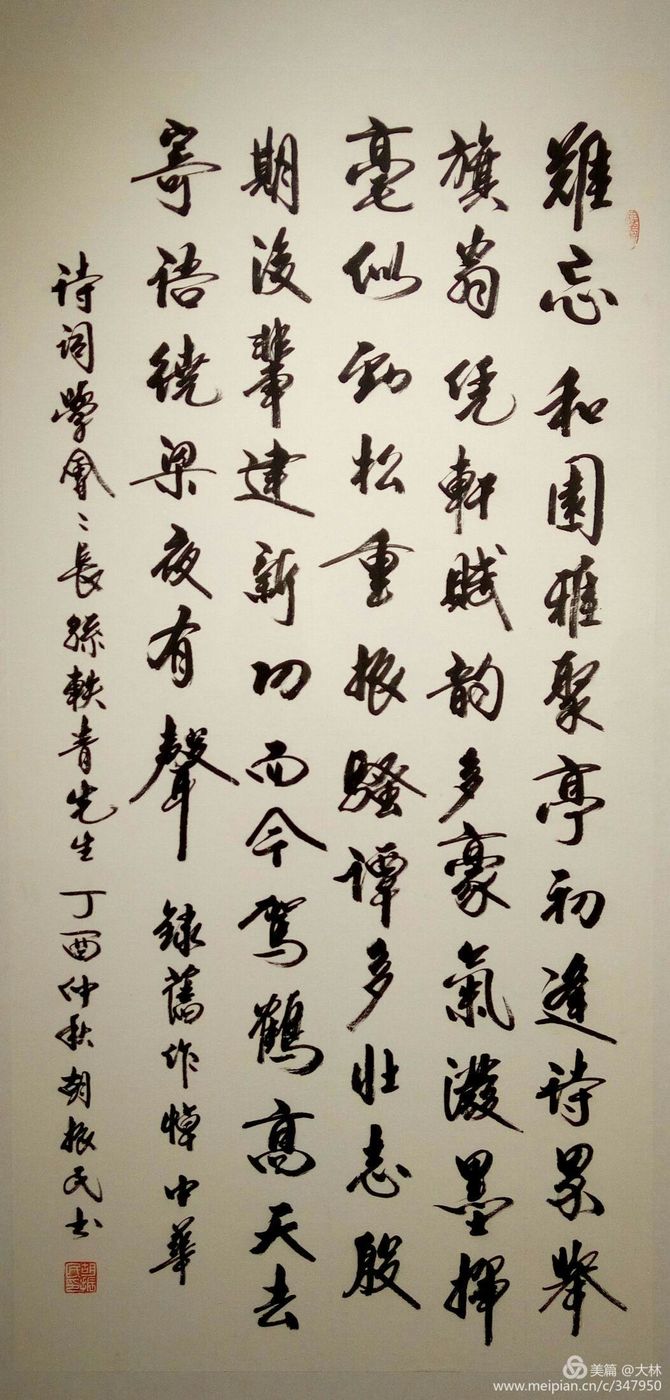 難忘和園雅聚亭初逢诗界舉
旗翁凭軒賦韵多豪氣潑墨揮
毫似勁松重振騷谭多壮志殷
期後輩建新功而今驾鶴高天去
寄语繞梁夜有聲 錄舊作悼中華
诗词學會〻長孫軼青先生 丁酉仲秋胡振民书
胡振民印
美篇 @大林
www.meipian.cn/c/347950